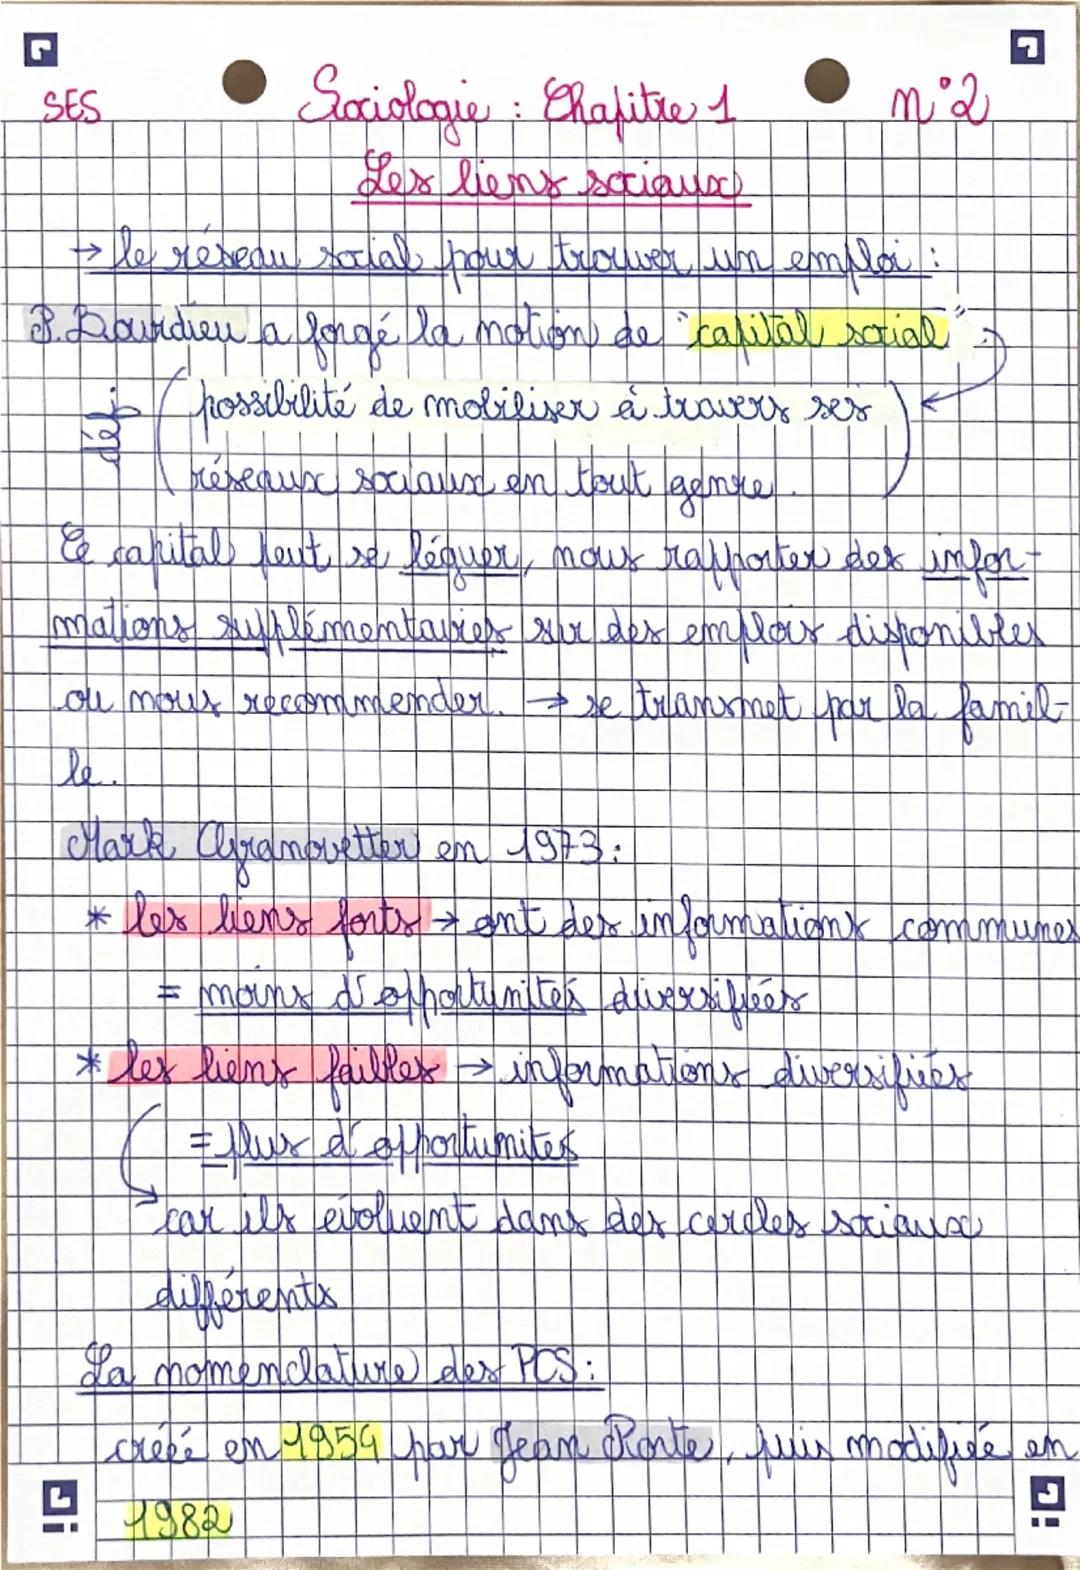 SES Sociologie : Chapitre 1 n°2
Les liens sociaux
→ le réseau social pour trouver un emploi :
P. Bourdieu a forgé la notion de "capital social"
déf possibilité de mobiliser à travers ses
réseaux sociaux en tout genre.
Ce capital peut se léguer, nous rapporter des infor-
mations supplémentaires sur des emplois disponibles
ou nous recommender. → se transmet par la famil-
le.
Mark Granovetter en 1973 :
* les liens forts → ont des informations communes
= moins d'opportunités diversifiées
* les liens faibles → informations diversifiées
= plus d'opportunités
car ils évoluent dans des cercles sociaux
différents
La nomenclature des PCS :
créée en 1954 par Jean Porte, puis modifiée en
1982